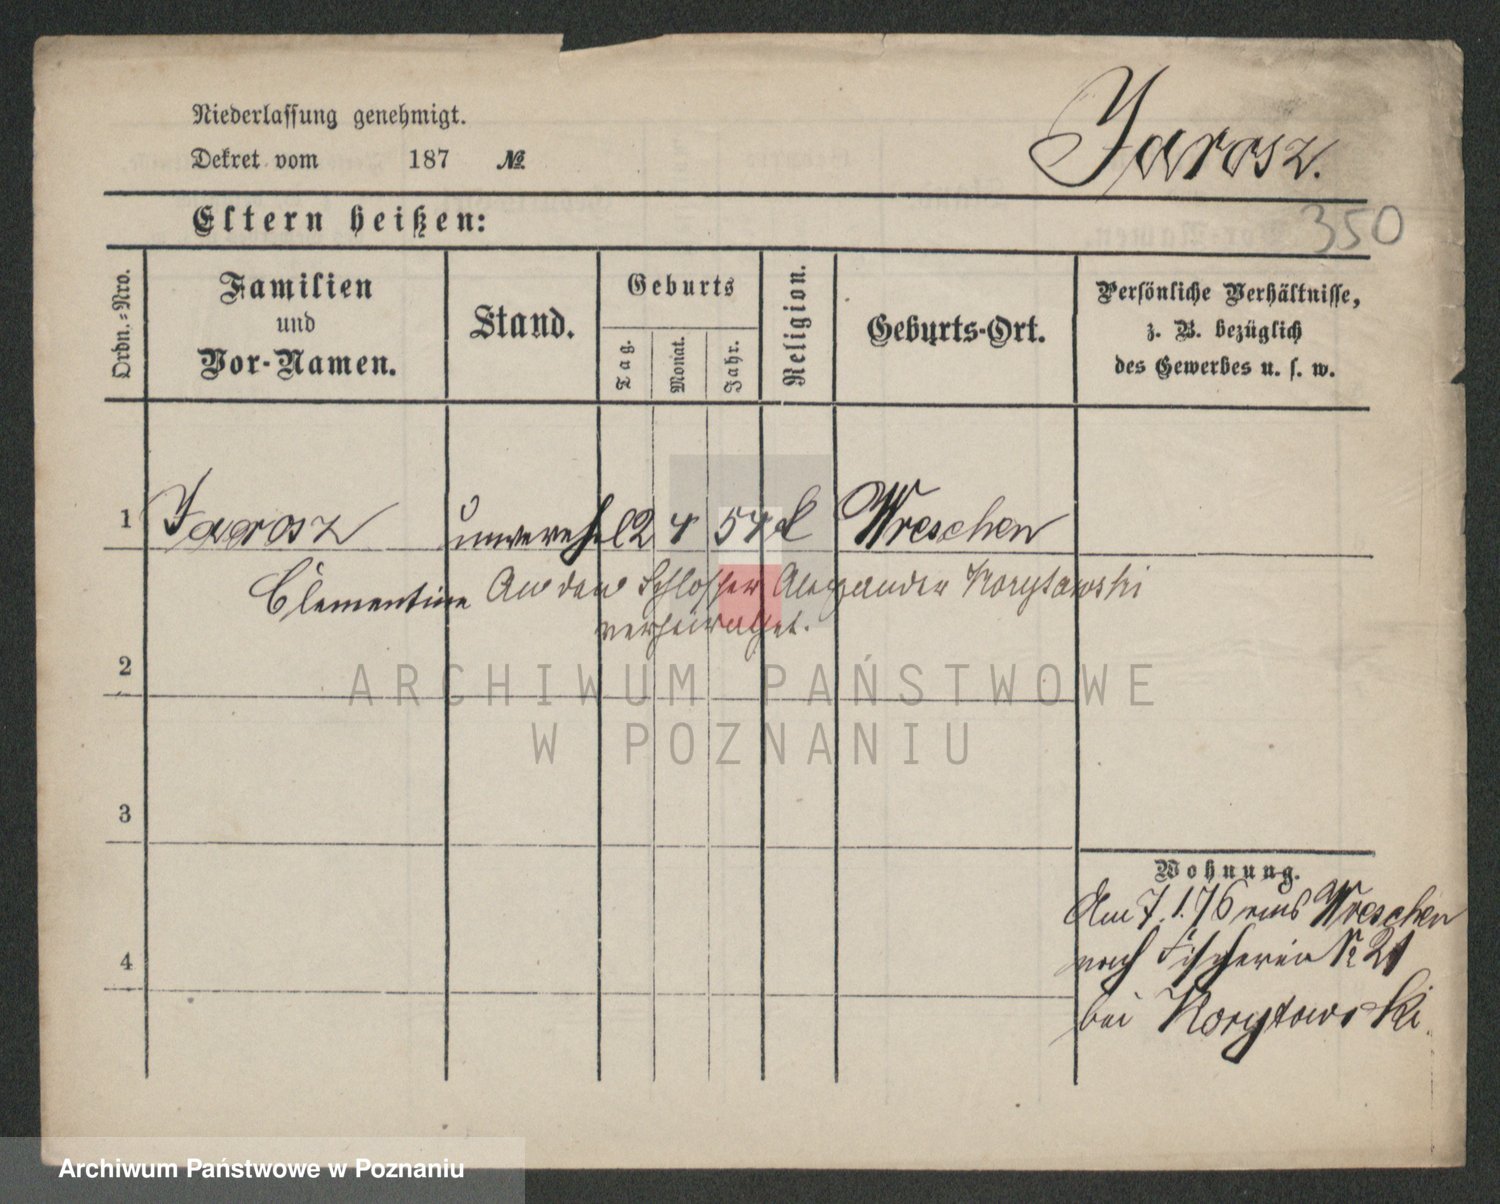 Niederlassung genehmigt.
Jarosz.
Dekret vom 187 №
Eltern heißen:
350
Ordn.-Nro.
Familien
und
Vor-Namen.
Stand.
Geburts
Tag.
Monat.
Jahr.
Religion.
Geburts-Ort.
Persönliche Verhältnisse,
z. B. bezüglich
des Gewerbes u. s. w.
1 Jarosz unvereh. 12 4 54 k Wreschen
Clementine An den Schlosser Alexander Korytowski
verheirathet.
2
3
4
Wohnung.
Am 7.1.76 aus Wreschen
nach Fischerei № 21
bei Korytowski
ARCHIWUM PAŃSTWOWE
W POZNANIU
Archiwum Państwowe w Poznaniu